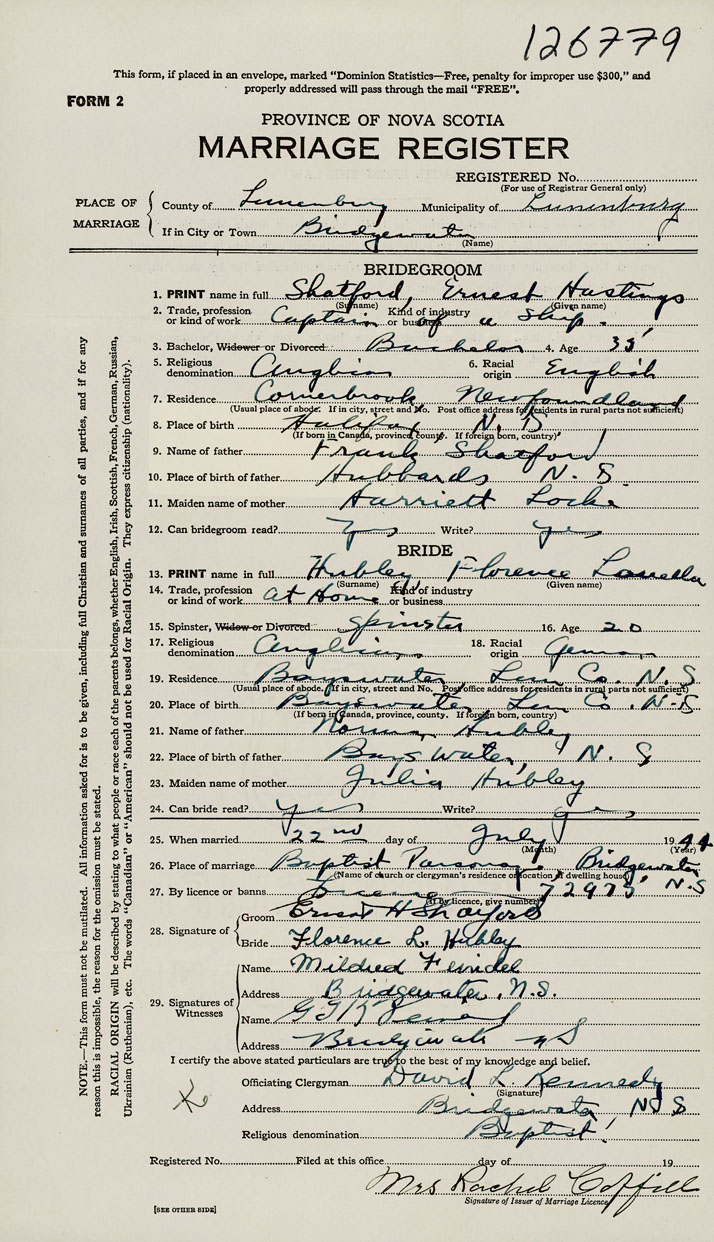 126779
This form, if placed in an envelope, marked "Dominion Statistics—Free, penalty for improper use $300," and
properly addressed will pass through the mail "FREE".
FORM 2
PROVINCE OF NOVA SCOTIA
MARRIAGE REGISTER
REGISTERED No.
(For use of Registrar General only)
PLACE OF MARRIAGE
County of Lunenburg Municipality of Lunenburg
If in City or Town Bridgewater
(Name)
BRIDEGROOM
1. PRINT name in full Shatford, Ernest Hastings
(Surname) (Given name)
2. Trade, profession or kind of work Captain of a Ship. Kind of industry or business
3. Bachelor, Widower or Divorced Bachelor 4. Age 35
5. Religious denomination Anglican 6. Racial origin English
7. Residence Cornerbrook, Newfoundland
(Usual place of abode. If in city, street and No. Post office address for residents in rural parts not sufficient)
8. Place of birth Halifax N. S
(If born in Canada, province, county. If foreign born, country)
9. Name of father Frank Shatford
10. Place of birth of father Hubbards N. S.
11. Maiden name of mother Harriett Locke
12. Can bridegroom read? Yes Write? yes
BRIDE
13. PRINT name in full Hubley Florence
(Surname) (Given name)
14. Trade, profession or kind of work at Home Kind of industry or business
15. Spinster, Widow or Divorced Spinster 16. Age 20
17. Religious denomination Anglican 18. Racial origin German
19. Residence Bayswater, Lun Co. N. S
(Usual place of abode. If in city, street and No. Post office address for residents in rural parts not sufficient)
20. Place of birth Bayswater, Lun Co. N. S
(If born in Canada, province, county. If foreign born, country)
21. Name of father Norman Hubley
22. Place of birth of father Bayswater, N. S
23. Maiden name of mother Julia Hubley
24. Can bride read? yes Write? yes
25. When married 22nd day of July 1944
(Month) (Year)
26. Place of marriage Baptist Parsonage, Bridgewater
(Name of church or clergyman's residence or location if dwelling house) N. S
27. By licence or banns License 72975
(If by licence, give number)
28. Signature of
Groom Ernest H Shatford
Bride Florence L. Hubley
29. Signatures of Witnesses
Name Mildred Feindel
Address Bridgewater, N.S.
Name
Address Bridgewater NS
I certify the above stated particulars are true to the best of my knowledge and belief.
Officiating Clergyman David L. Kennedy
(Signature)
Address Bridgewater N S
Religious denomination Baptist
Registered No. Filed at this office day of 19
Mrs Rachel Coffill
Signature of Issuer of Marriage Licence
[SEE OTHER SIDE]
NOTE.—This form must not be mutilated. All information asked for is to be given, including full Christian and surnames of all parties, and if for any
reason this is impossible, the reason for the omission must be stated.
RACIAL ORIGIN will be described by stating to what people or race each of the parents belongs, whether English, Irish, Scottish, French, German, Russian,
Ukrainian (Ruthenian), etc. The words "Canadian" or "American" should not be used for Racial Origin. They express citizenship (nationality).